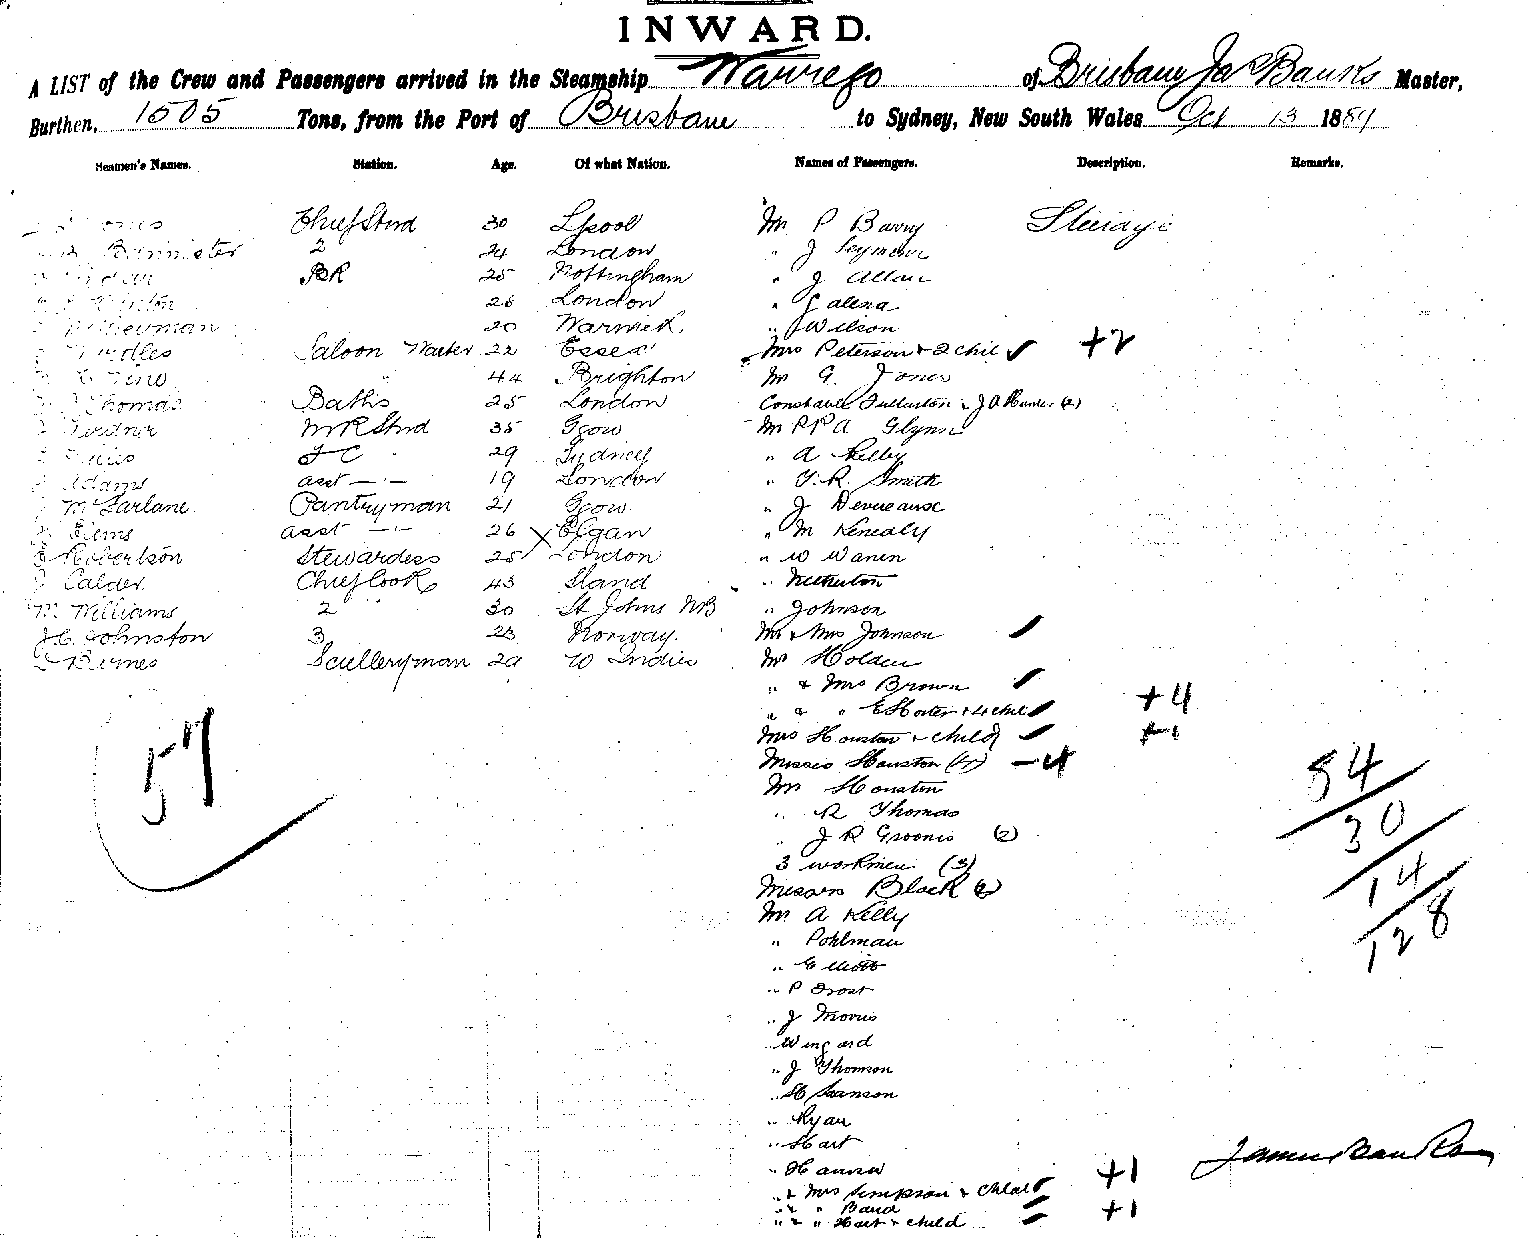 INWARD.
A LIST of the Crew and Passengers arrived in the Steamship Warrego of Brisbane Jas Banks Master,
Burthen, 1505 Tons, from the Port of Brisbane to Sydney, New South Wales Oct 13 1889
Seamen's Names. Station. Age. Of what Nation. Names of Passengers. Description. Remarks.
Chief Stwd 30 Lpool Mr P Barry Steerage
Bannister 2 24 London " J Seymour
BR 25 Nottingham " J Allan
26 London " Galena
20 Warwick. " Wilson
Saloon Waiter 22 Essex Mrs Peterson + 2 chil +2
44 Brighton Mr G. Jones
Thomas Baths 25 London Constable Fullerton + J A (2)
Gardner 35 Ggow Mr P P A Glynn
29 Sydney " A Kelly
Adams asst — " — 19 London " T. R. Smith
J McFarlane Pantryman 21 Ggow " J Devereaux
asst — " — 26 Elgan " M Kenealy
E Robertson Stewardess 25 London " W Warren
J Calder Chief Cook 43 Sland " Netherton
M Williams 2 " 30 St Johns NB " Johnson
J C Johnston 3 23 Norway. Mr + Mrs Johnson
Byrnes Sculleryman 29 W Indies Mr Holden
" + Mrs Brown
" + " E Horter + 4 chil +4
Mrs Houston + child +1
Misses Houston (4) – 4
57
Mr Houston
84
" R Thomas
30
" J R Grooms (2)
3 workmen (3)
14
Messrs Black (2)
Mr A Kelly
128
" Pohlman
" Elliott
" P Frost
" J Morris
Wingard
" J Thomson
" H Swanson
" Ryan
" Hart
" Hanna +1
" + Mrs Simpson + child
" + " Band +1
" + " Hart + child
James Banks